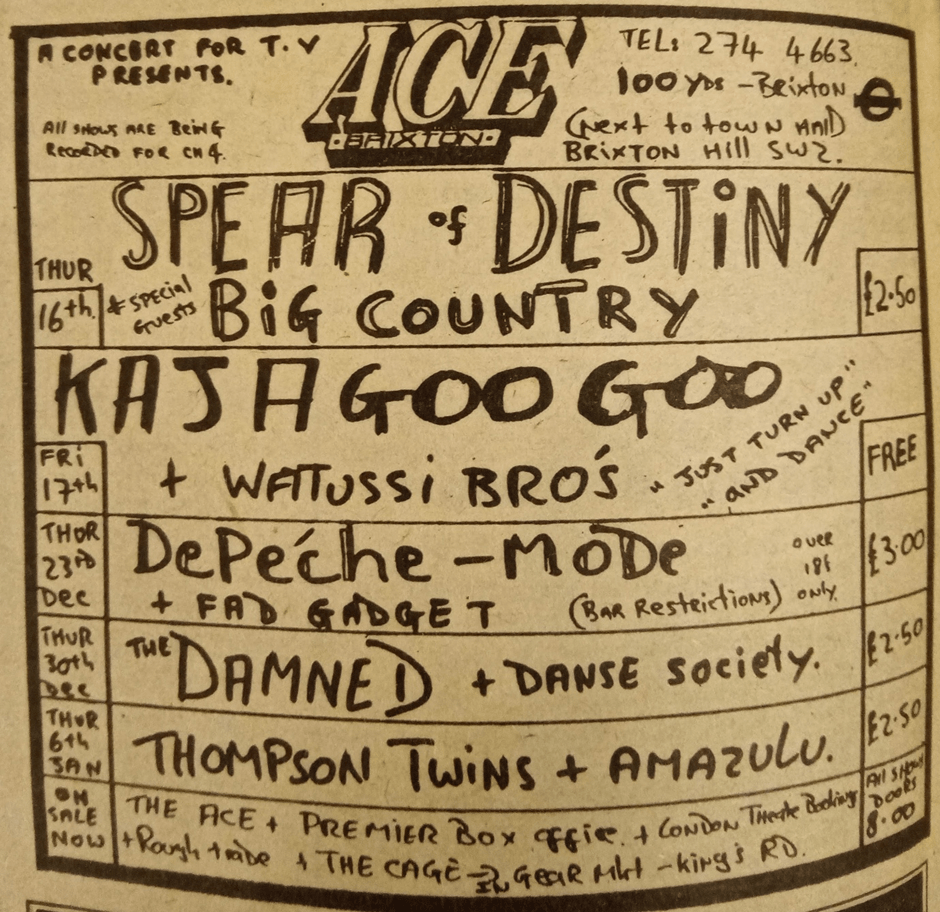 A CONCERT FOR T.V
PRESENTS.
All SHOWS ARE BEING
RECORDED FOR CH4.
ACE
·BRIXTON·
TEL: 274 4663.
100 YDS – Brixton
(Next to town Hall)
BRIXTON Hill SW2.
SPEAR of DESTiNY
THUR
16th.
* SPECIAL
Guests
BiG COUNTRY
£2·50
KAJAGOO GOO
FRi
17th
+ WATUSSi BRO'S
"JUST TURN UP"
"AND DANCE"
FREE
THUR
23RD
Dec
DePéche – MODe
+ FAD GADGET
(BAR Restrictions)
over
18s
only.
£3·00
THUR
30th
Dec
THE DAMNED + DANSE society.
£2·50
THUR
6th
JAN
THOMPSON TWiNS + AMAZULU.
£2·50
ON
SALE
NOW
THE ACE + PREMIER BOX office. + LONDON Theatre Bookings
+ Rough trade + THE CAGE – IN Gear Mkt – king's RD.
All SHOWS
DOORS
8.00